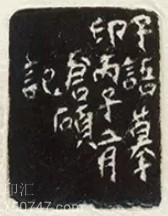 語摹
印丙子月
倉碩
記
印汇
50747.com